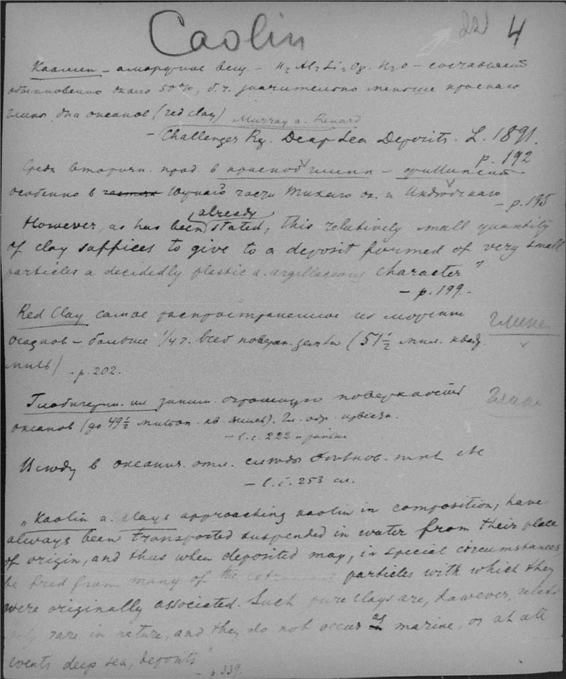 Caolin
22 4
Каолин - аморфное вещ. - H2 Al2 Si2 O9. H2O - составляет
обыкновенно около 50%, б.ч. значительно меньше красной
глины дна океанов (red clay) Murray a. Renard
- Challenger Rep. Deep Sea Deposits. L. 1891.
p. 192
Среди вторичн. прод. в красной глине - филлипсит
особенно в южной части Тихого ок. и Индийского
- p. 195
However, as has been already stated, this relatively small quantity
of clay suffices to give to a deposit formed of very small
particles a decidedly plastic a. argillaceous character"
- p. 199.
Red Clay самое распространенное из морских
осадков - больше 1/4 г. всей поверхн. земли (51 1/2 мил. квад.
миль) - p. 202.
Глина
Глобигерин. ил заним. огромную поверхность
океанов (до 49 1/2 милл. кв. миль).
- l.c. 222
Глина
Всюду в океанич. отл. следы
- l.c. 253
"Kaolin a. clays approaching kaolin in composition, have
always been transported suspended in water from their place
of origin, and thus when deposited may, in special circumstances
be freed from many of the particles with which they
were originally associated. Such pure clays are, however,
rare in nature, and they do not occur as marine, or at all
events deep sea, deposits"
- p. 339.